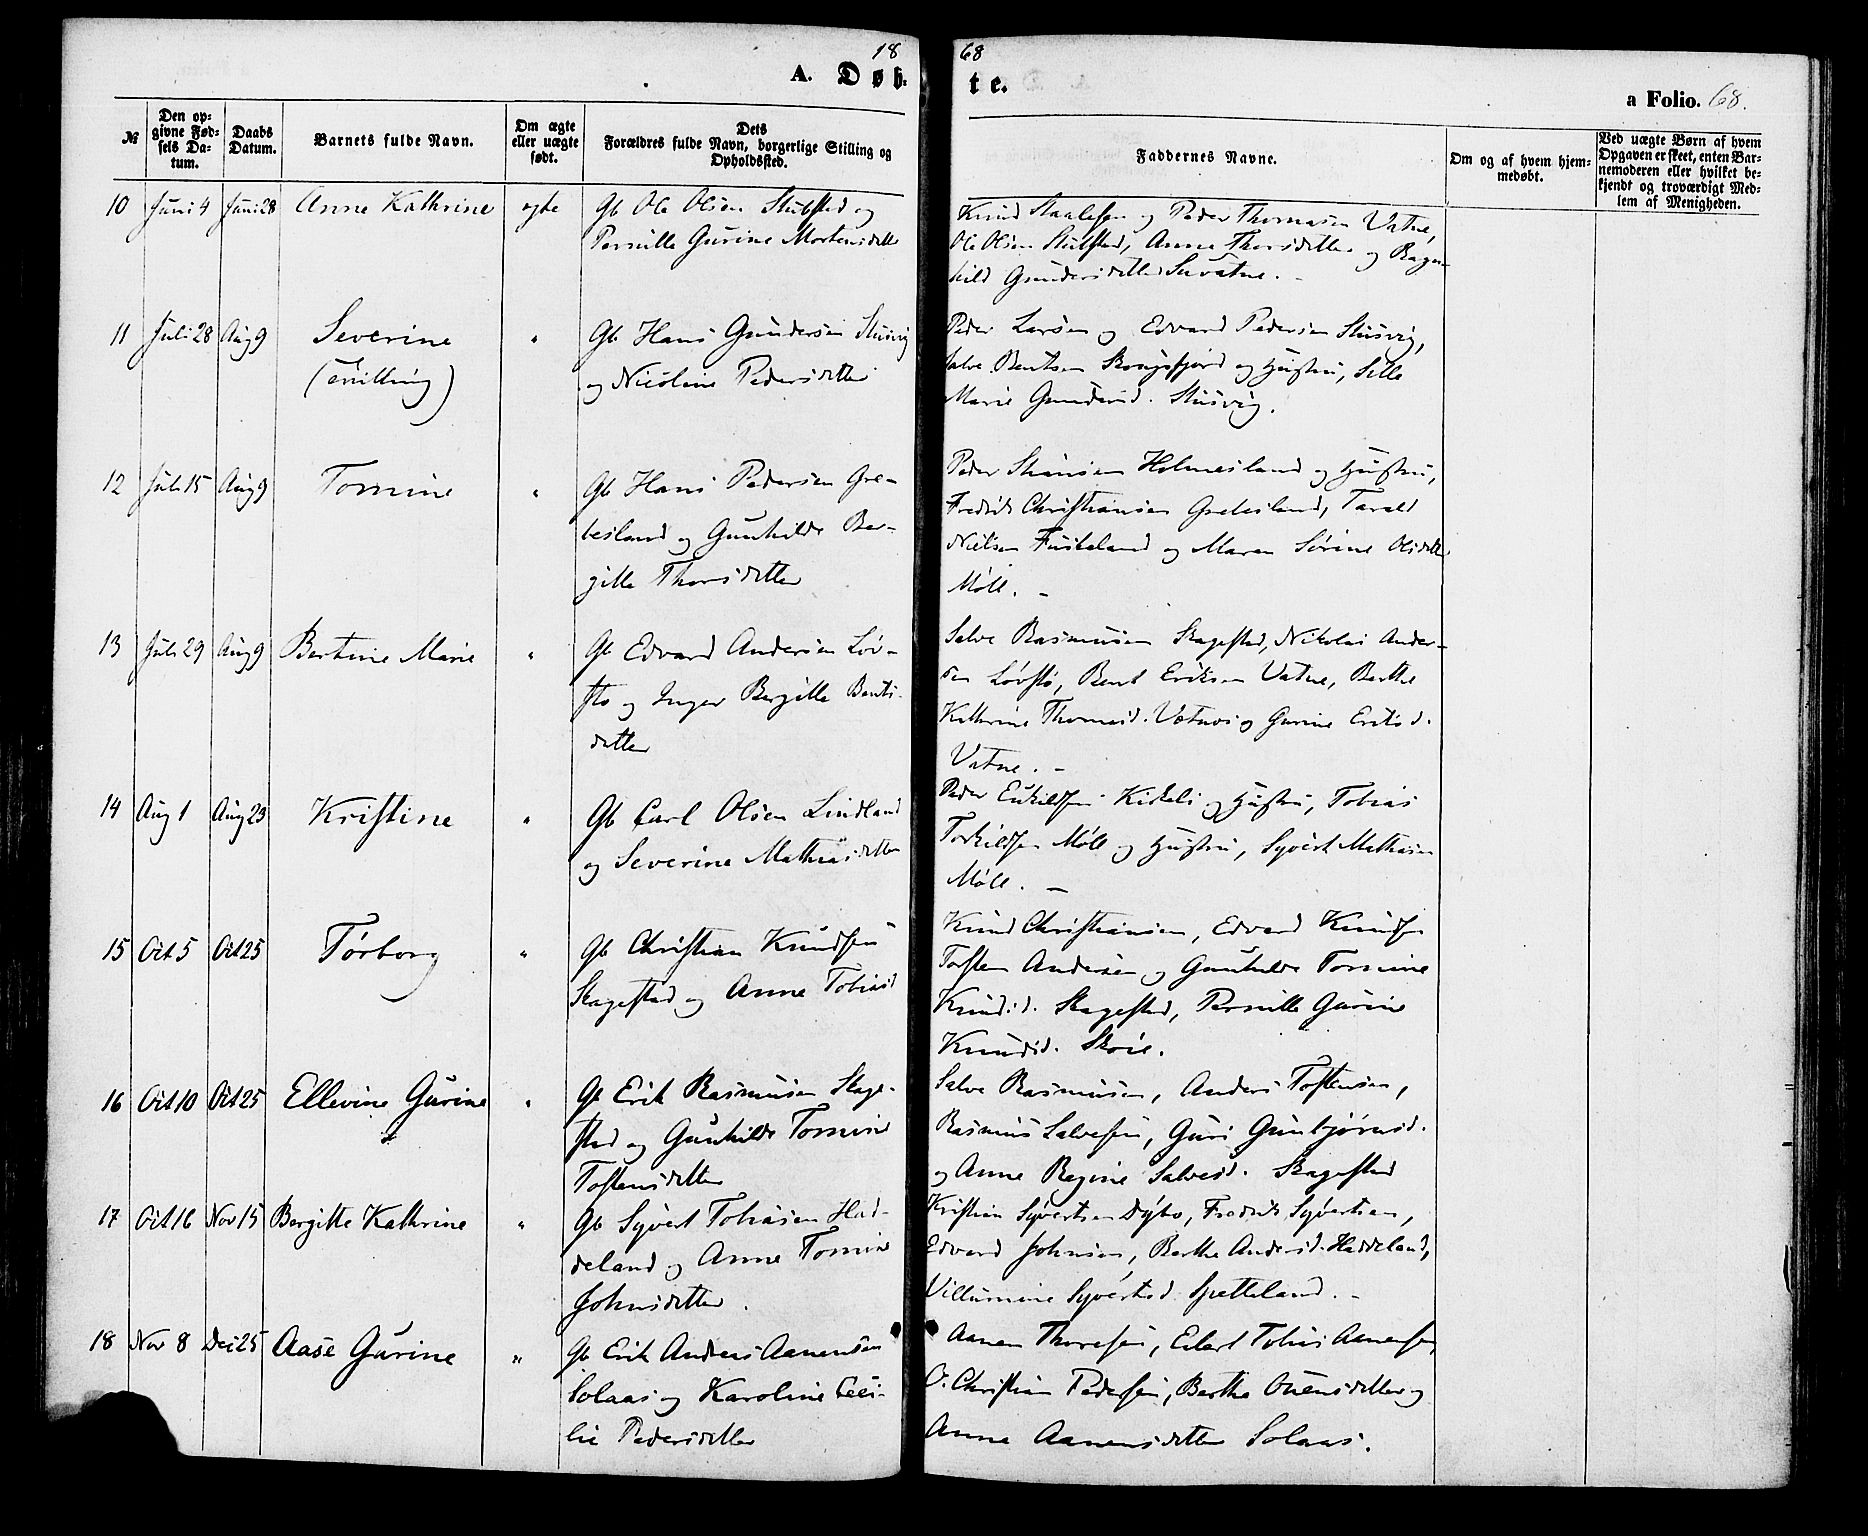 18 68
A. Døb-te.
a Folio. 68.
№
Den op-
givne Fød-
sels Da-
tum.
Daabs
Datum.
Barnets fulde Navn.
Om ægte
eller uægte
født.
Dets
Forældres fulde Navn, borgerlige Stilling og
Opholdssted.
Faddernes Navne.
Om og af hvem hjem-
medøbt.
Ved uægte Børn af hvem
Opgaven er skeet, enten Bar-
nemoderen eller hvilket be-
kjendt og troværdigt Med-
lem af Menigheden.
10 Juni 4 Juni 28 Anne Kathrine ægte
Gb Ole Olsen Stubsted og
Pernille Gurine Mortensdatter
Knud Staalesen og Peder Thomasen Vatne,
Ole Olsen Stubsted, Anne Thorsdatter og Ragn-
hild Gundersdatter
11 Juli 28 Aug 9 Severine "
(tvilling)
Gb Hans Gundersen Stusvig
og Nicoline Pedersdatter
Peder Larsen og Edvard Pedersen Stusvig,
Salve Bentsen og Hustru, Sille
Marie Gundersd. Stusvig.
12 Juli 15 Aug 9 Tomine "
Gb Hans Pedersen Gre-
besland og Gunhilde Ber-
gitte Thorsdatter
Peder Holmesland og Hustru,
Fredrik Christiansen Grebesland, Tarald
Nielsen Fuskeland og Maren Sørine Olsdatter
Møll. -
13 Juli 29 Aug 9 Bertine Marie "
Gb Edvard Andersen Løv-
stø og Inger Bergitte Bents-
datter
Salve Rasmusen Skagestad, Nikolai Ander-
sen Løvstø, Bent Eriksen Vatne, Berthe
Kathrine Thomasd. Vatne og Gurine Eriksd.
Vatne. -
14 Aug 1 Aug 23 Kristine "
Gb Carl Olsen Lindland
og Severine Mathiasdatter
Peder og Hustru, Tobias
Torkildsen Møll og Hustru, Syvert Mathiasen
Møll. -
15 Oct 5 Oct 25 Tørborg "
Gb Christian Knudsen
Skagestad og Anne Tobiasd
Knud Christiansen, Edvard Knudsen
Tosten Andersen og Gunhilde Tomine
Knudsd. Skagestad, Pernille Gurine
Knudsd. Skoie.
16 Oct 10 Oct 25 Ellevine Gurine "
Gb Erik Rasmusen Skage-
stad og Gunhilde Tomine
Tostensdatter
Salve Rasmusen, Anders Tostensen,
Rasmus Salvesen, Guri Gunbjørnsd.
og Anne Regine Salvesd. Skagestad
17 Oct 16 Nov 15 Bergitte Kathrine "
Gb Syvert Tobiasen Had-
deland og Anne Tomine
Johnsdatter.
Kristian Syvertsen Dybo, Fredrik Syvertsen,
Edvard Johnsen, Berthe Andersd. Haddeland,
Villumine Syvertsd. Spetteland. -
18 Nov 8 Dec 25 Aase Gurine "
Gb Erik Andreas Aanensen
Solaas og Karoline Ceci-
lie Pedersdatter
Aanen Thoresen, Edert Tobias Aanensen,
O. Christian Pedersen, Berthe Ouensdatter og
Anne Aanensdatter Solaas.